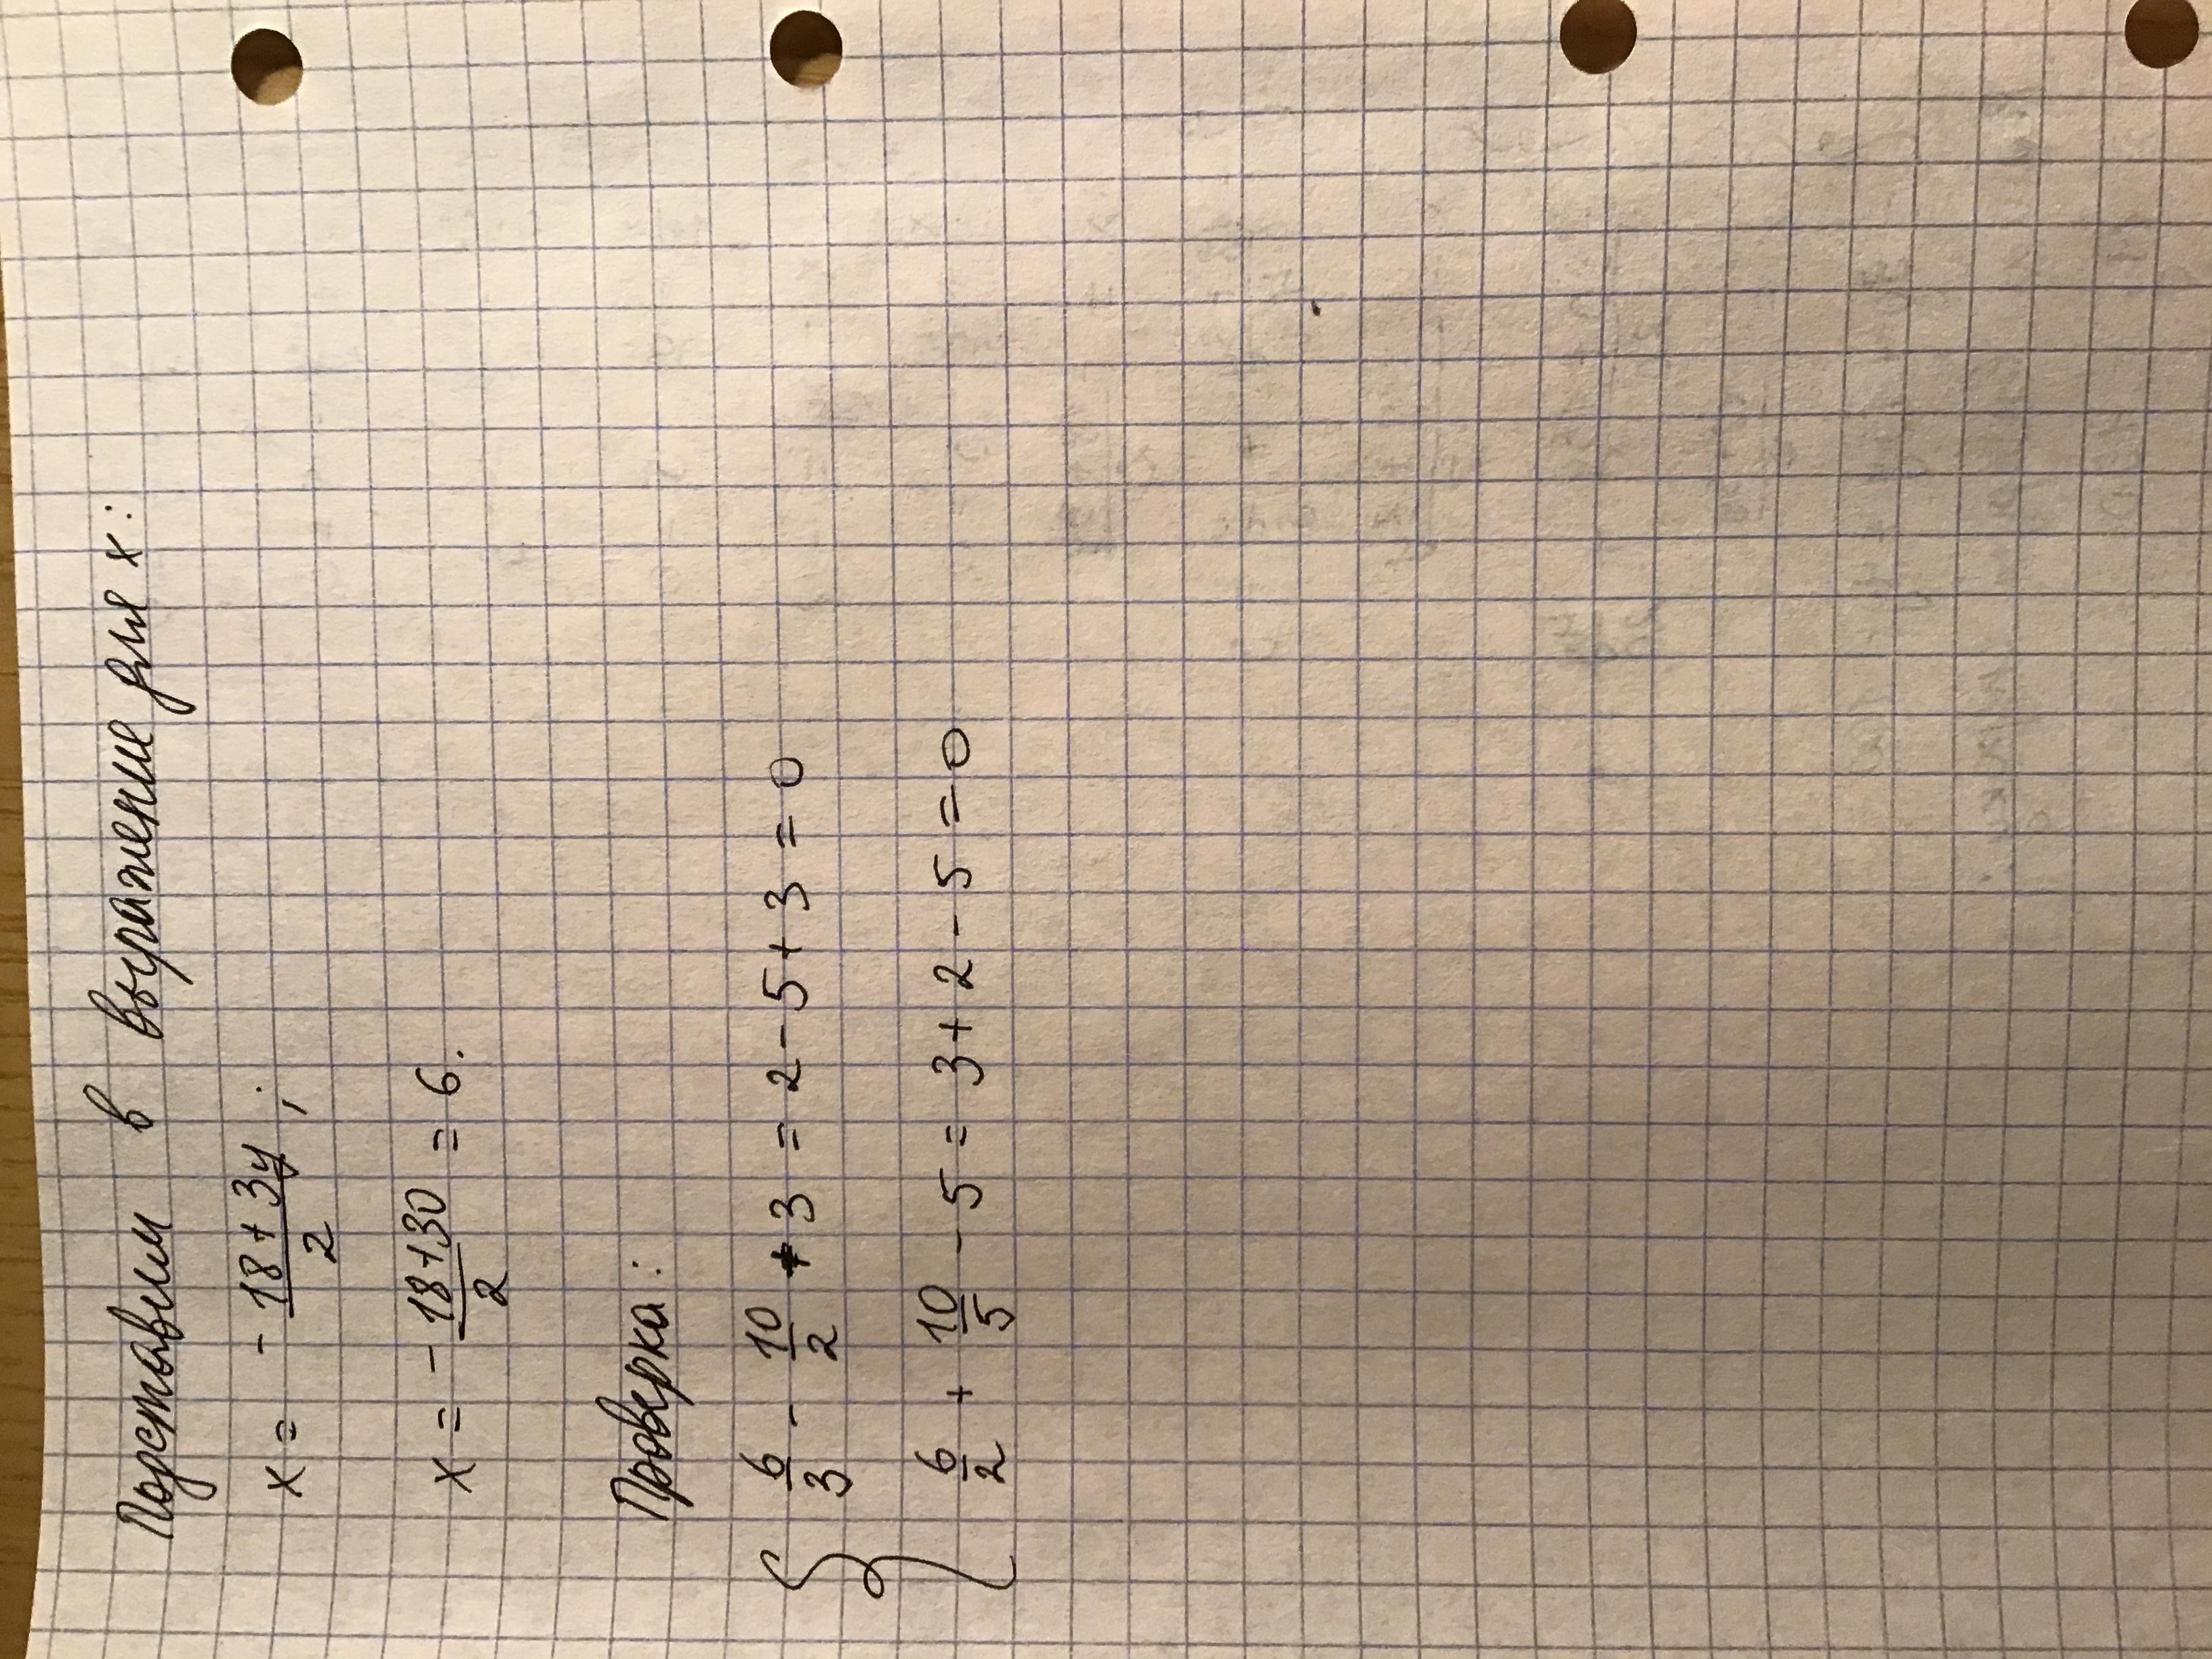 Подставим в выражение для x:
x = - 18 + 3y / 2 ;
x = - 18 + 30 / 2 = 6.
Проверка:
{ 6/3 - 10/2 + 3 = 2 - 5 + 3 = 0
6/2 + 10/5 - 5 = 3 + 2 - 5 = 0